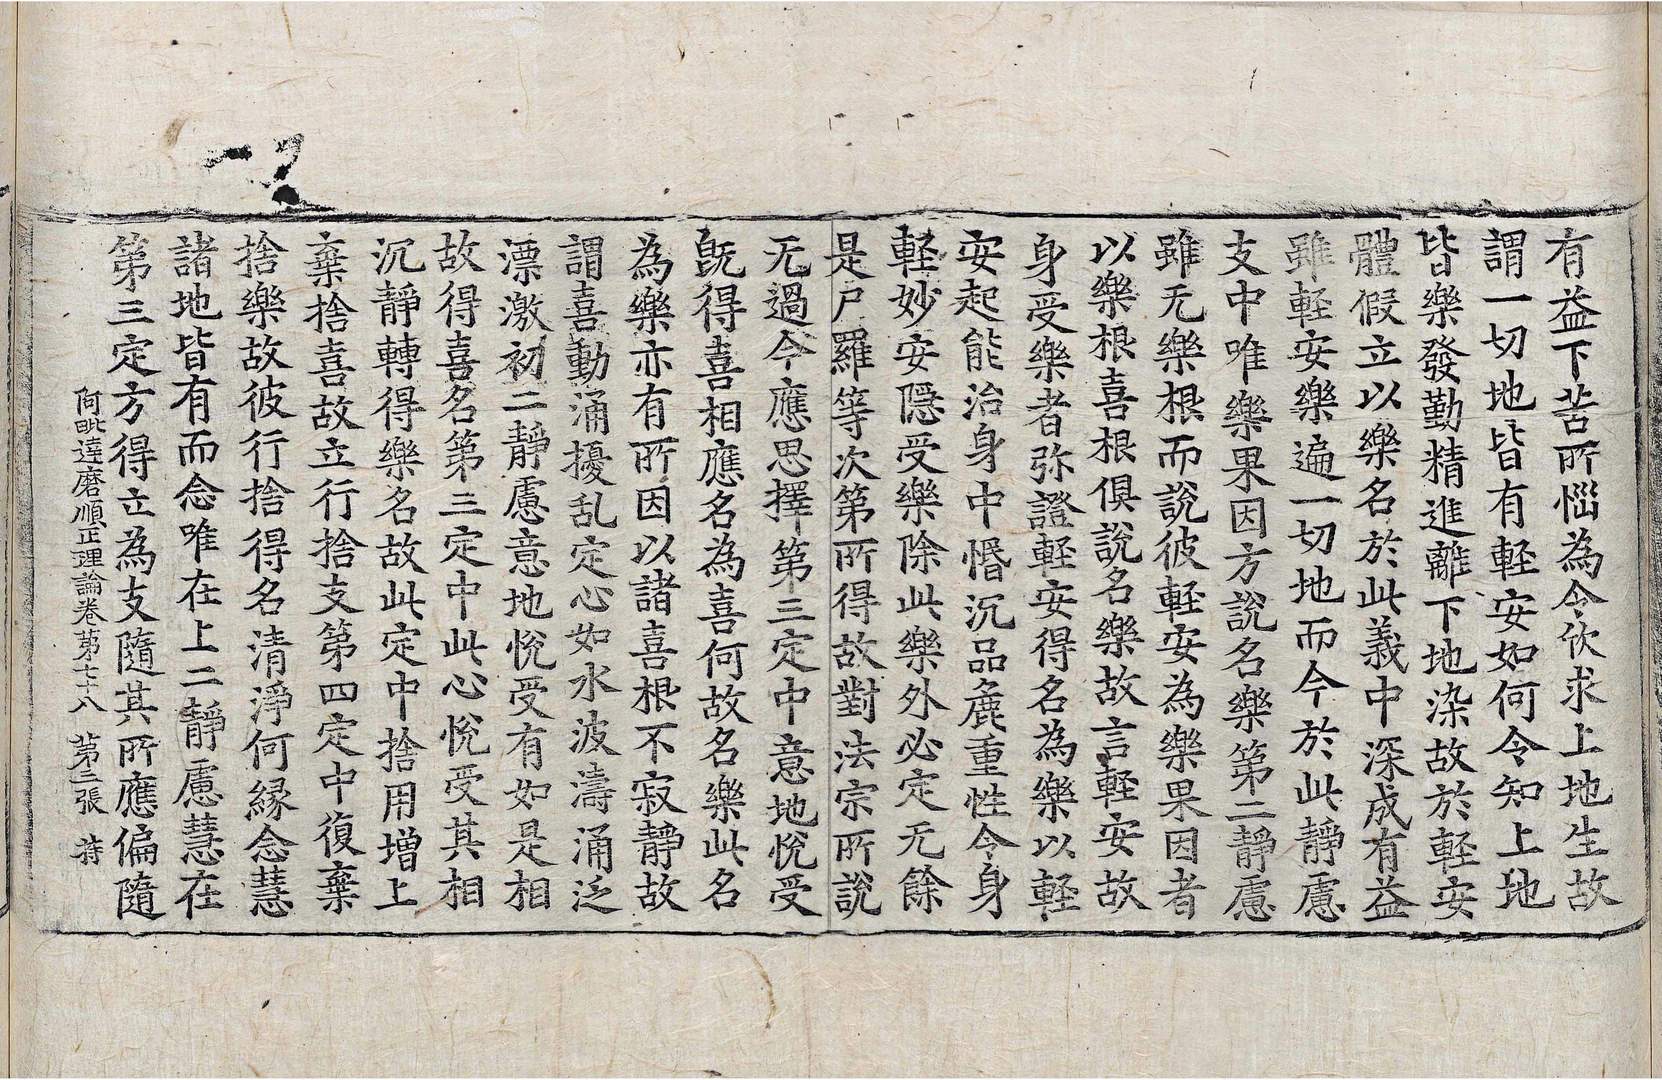 有益下苦所惱為令欣求上地生故
謂一切地皆有輕安如何令知上地
皆樂發勤精進離下地染故於輕安
體假立以樂名於此義中深成有益
雖輕安樂遍一切地而今於此靜慮
支中唯樂果因方說名樂第二靜慮
雖无樂根而說彼輕安為樂果因者
以樂根喜根俱說名樂故言輕安故
身受樂者弥證輕安得名為樂以輕
安起能治身中惛沉品麁重性令身
輕妙安隱受樂除此樂外必定无餘
是尸羅等次第所得故對法宗所說
无過今應思擇第三定中意地悅受
旣得喜相應名為喜何故名樂此名
為樂亦有所因以諸喜根不寂靜故
謂喜動涌擾乱定心如水波濤涌泛
漂激初二靜慮意地悅受有如是相
故得喜名第三定中此心悅受其相
沉靜轉得樂名故此定中捨用增上
棄捨喜故立行捨支第四定中復棄
捨樂故彼行捨得名清淨何緣念慧
諸地皆有而念唯在上二靜慮慧在
第三定方得立為支隨其所應偏隨
阿毗達磨順正理論卷第七十八　第三張　持